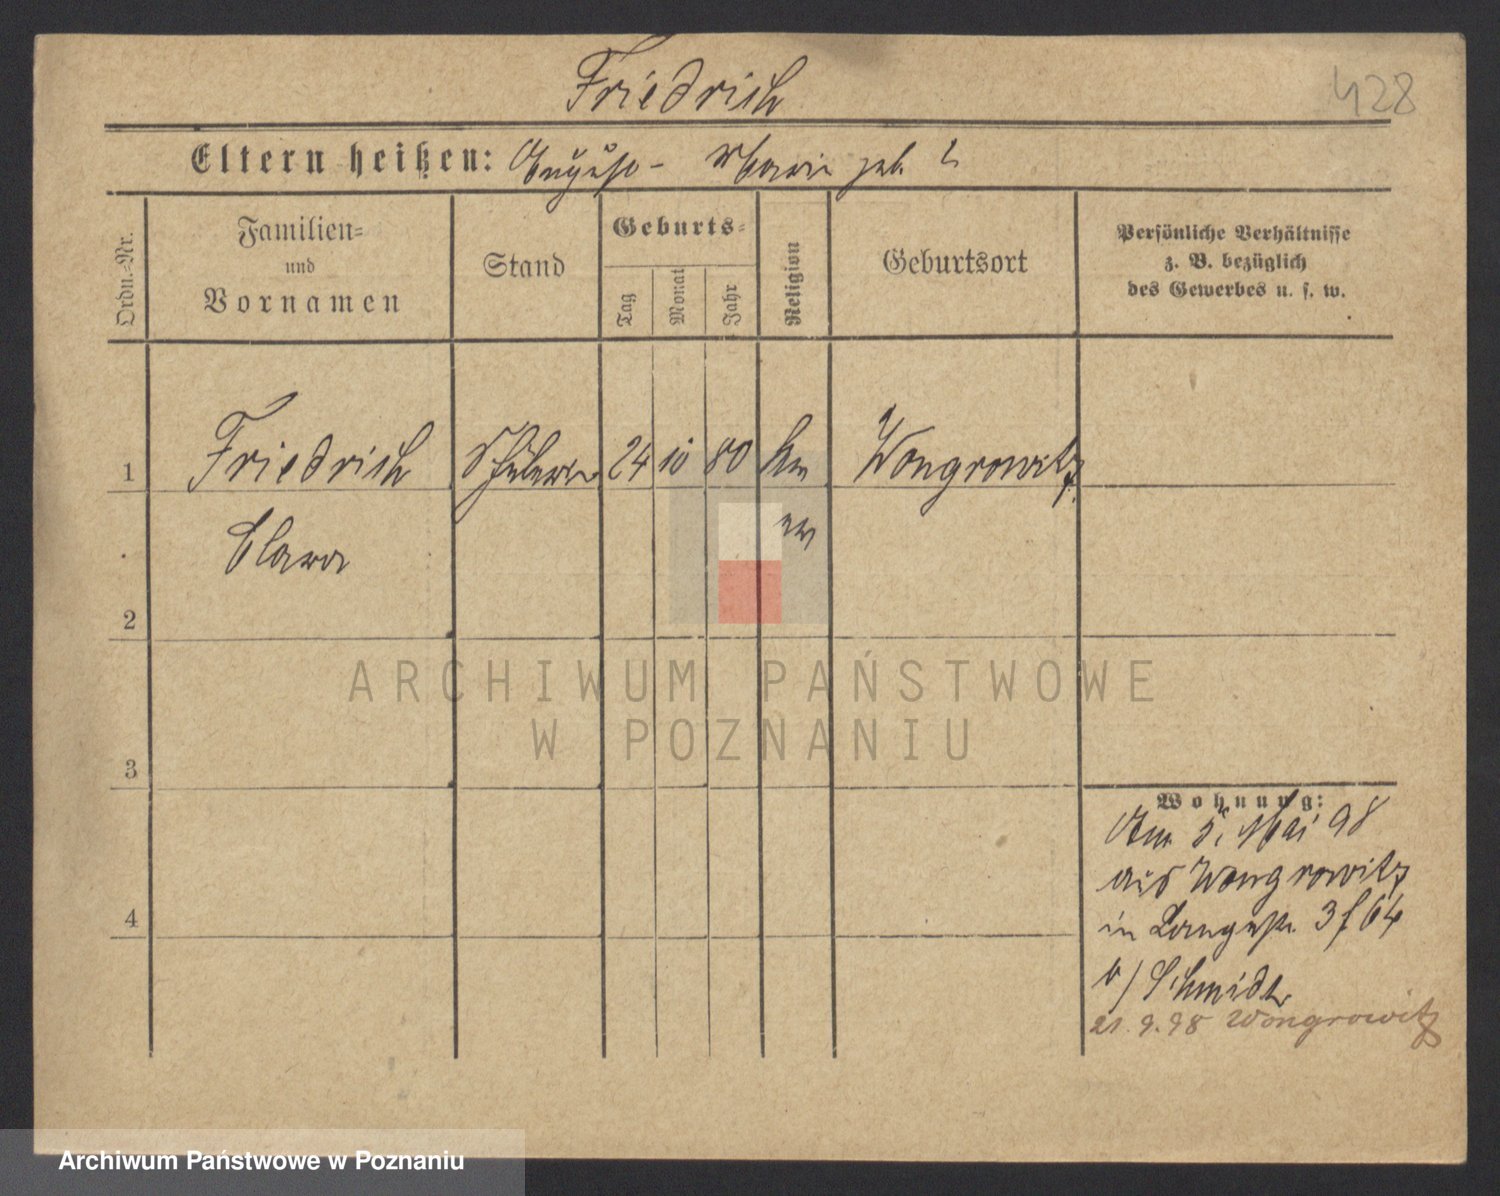 Friedrich
428
Eltern heißen: August - Marie geb. ?
Ordn.-Nr.
Familien-
und
Vornamen
Stand
Geburts-
Tag
Monat
Jahr
Religion
Geburtsort
Persönliche Verhältnisse
z. B. bezüglich
des Gewerbes u. s. w.
1
Friedrich Schülerin 24 10 80 Wongrowitz
Clara
ev
2
ARCHIWUM PAŃSTWOWE
W POZNANIU
3
Wohnung:
Am 5. Mai 98
aus Wongrowitz
in Langestr. 3
4
b/ Schmidt
21. 9. 98 Wongrowitz
Archiwum Państwowe w Poznaniu